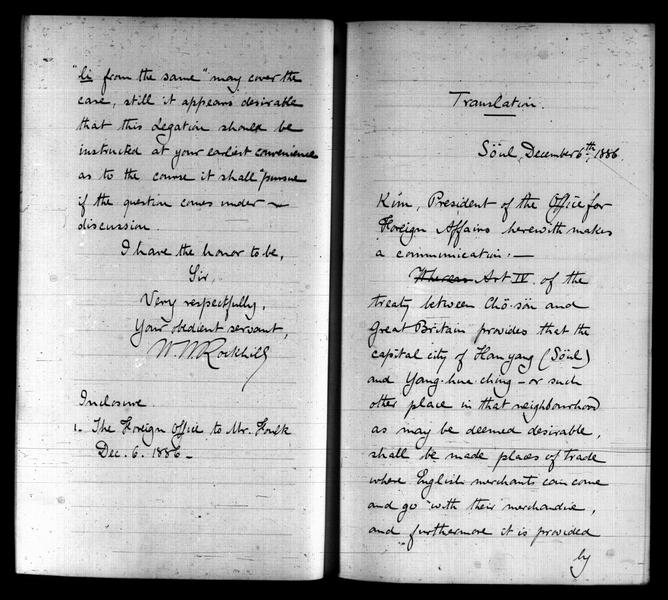 "li from the same" may cover the
case, still it appears desirable
that this Legation should be
instructed at your earliest convenience
as to the course it shall pursue
if the question comes under
discussion.
I have the honor to be,
Sir,
Very respectfully,
Your obedient servant,
W W Rockhill
Inclosure
1. The Foreign Office to Mr. Foulk
Dec. 6. 1886 -
Translation.
Söul, December 6th, 1886.
Kim, President of the Office for
Foreign Affairs herewith makes
a communication. -
Whereas Art IV. of the
treaty between Chö-sön and
Great Britain provides that the
capital city of Han yang (Söul)
and Yang-hwa ching - or such
other place in that neighbourhood
as may be deemed desirable,
shall be made places of trade
where English merchants can come
and go with their merchandise,
and furthermore it is provided
by